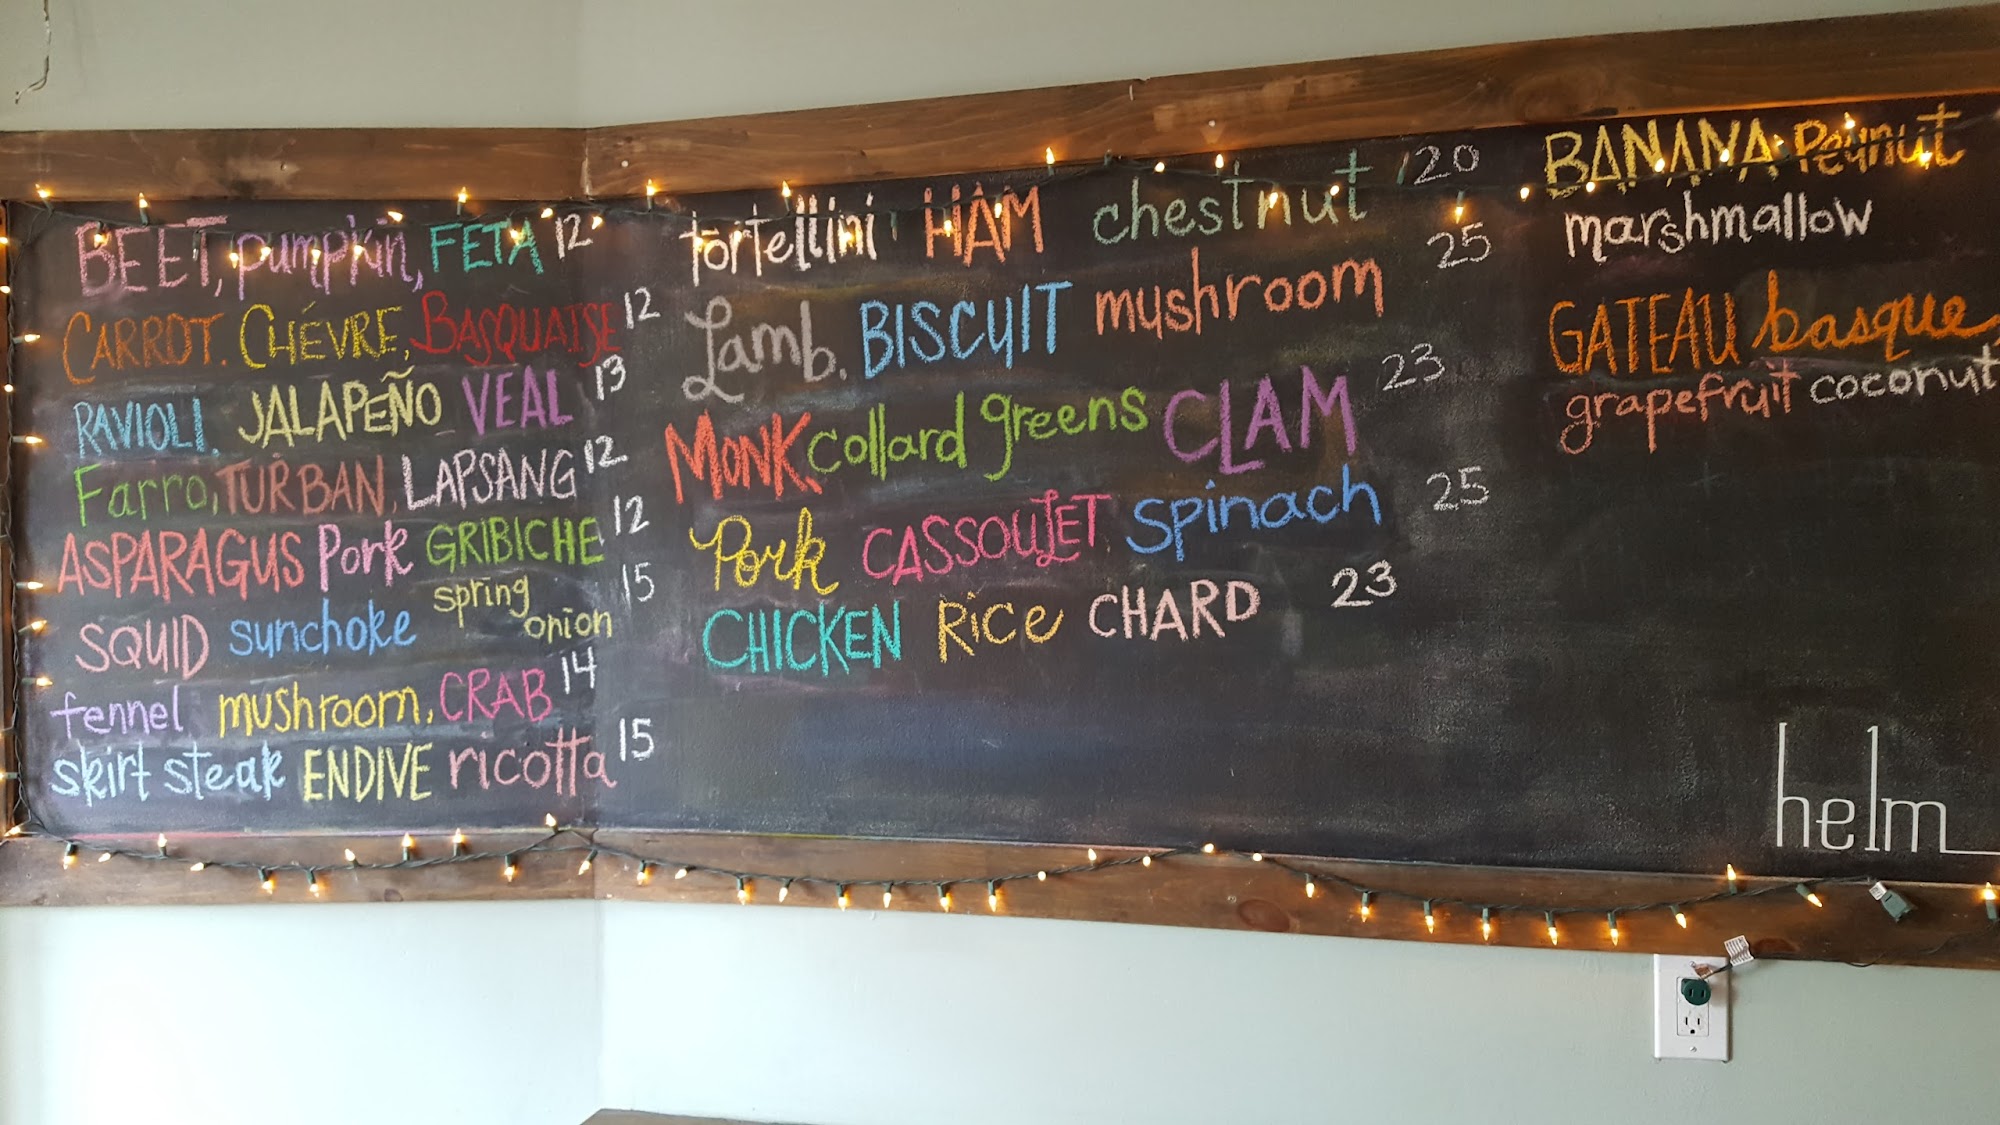 BEET, pumpkin, FETA 12
CARROT. CHÉVRE, BASQUAISE 12
RAVIOLI. JALAPEÑO VEAL 13
Farro, TURBAN, LAPSANG 12
ASPARAGUS Pork GRIBICHE 12
SQUID sunchoke spring onion 15
fennel mushroom, CRAB 14
skirt steak ENDIVE ricotta 15
tortellini HAM chestnut 20
Lamb. BISCUIT mushroom 25
MONK. collard greens CLAM 23
Pork CASSOULET Spinach 25
CHICKEN RiCe CHARD 23
BANANA Peanut
marshmallow
GATEAU basque,
grapefruit coconut
helm